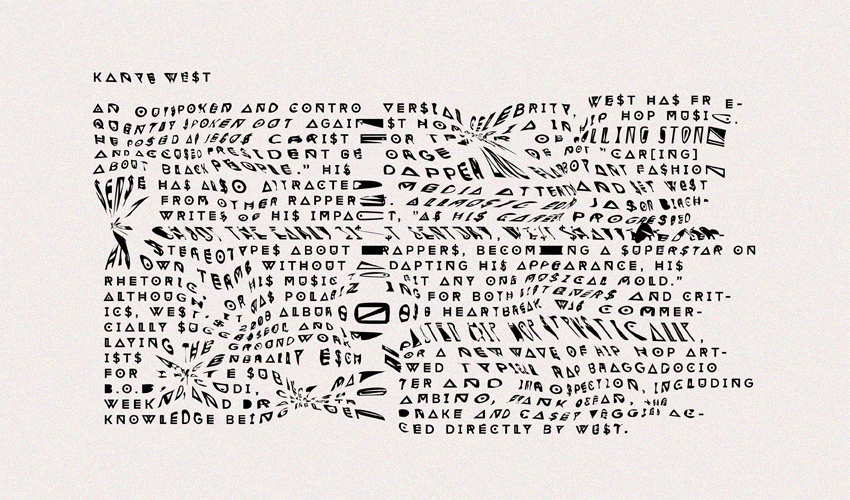 KANYE WE$T
AN OUT$POKEN AND CONTRO VER$IAL CELEBRITY, WE$T HA$ FR E-
QUENTLY $POKEN OUT AGAIN$T HOP IN HIP HOP MU$IC.
HE PO$ED A$ JE$U$ CHRI$T FOR THE OF ROLLING $TON
AND ACCU$ED PRE$IDENT GE ORGE OF NOT "CAR[ING]
ABOUT BLACK PEOPLE." HI$ DAPPER AND FLAMBOYANT FA$HION
$EN$E HA$ AL$O ATTRACTED MEDIA ATTENT AND $ET WE$T
FROM OTHER RAPPER$. ALLMU$IC EDI JA$ON BIRCH-
WRITE$ OF HI$ IMPACT, "A$ HI$ CAREER PROGRE$$ED
THE EARLY 21$T CENTURY, WE$T $HATTERED
$TEREOTYPE$ ABOUT RAPPER$, BECOMING A $UPER$TAR ON
HI$ OWN TERM$ WITHOUT ADAPTING HI$ APPEARANCE, HI$
RHETORIC, HI$ MU$IC FIT ANY ONE MU$ICAL MOLD."
ALTHOUGH POLARIZING FOR BOTH LI$TENER$ AND CRIT-
IC$, WE$T'$ 808 ALBUM 808$ HEARTBREAK WA$ COMMER-
CIALLY $UCCE$$FUL AND HIP HOP ARTI$TICALLY,
LAYING THE GROUNDWORK FOR A NEW WAVE OF HIP HOP ART-
I$T$ GENERALLY E$CHEWED TYPICAL RAP BRAGGADOCIO
FOR INTIMATE $UB MATTER AND INTRO$PECTION, INCLUDING
B.O.B, CUDI, GAMBINO, FRANK OCEAN, THE
WEEKND, AND DRAKE AND CA$EY VEGGIE$ AC-
KNOWLEDGE BEING INFLUENCED DIRECTLY BY WE$T.